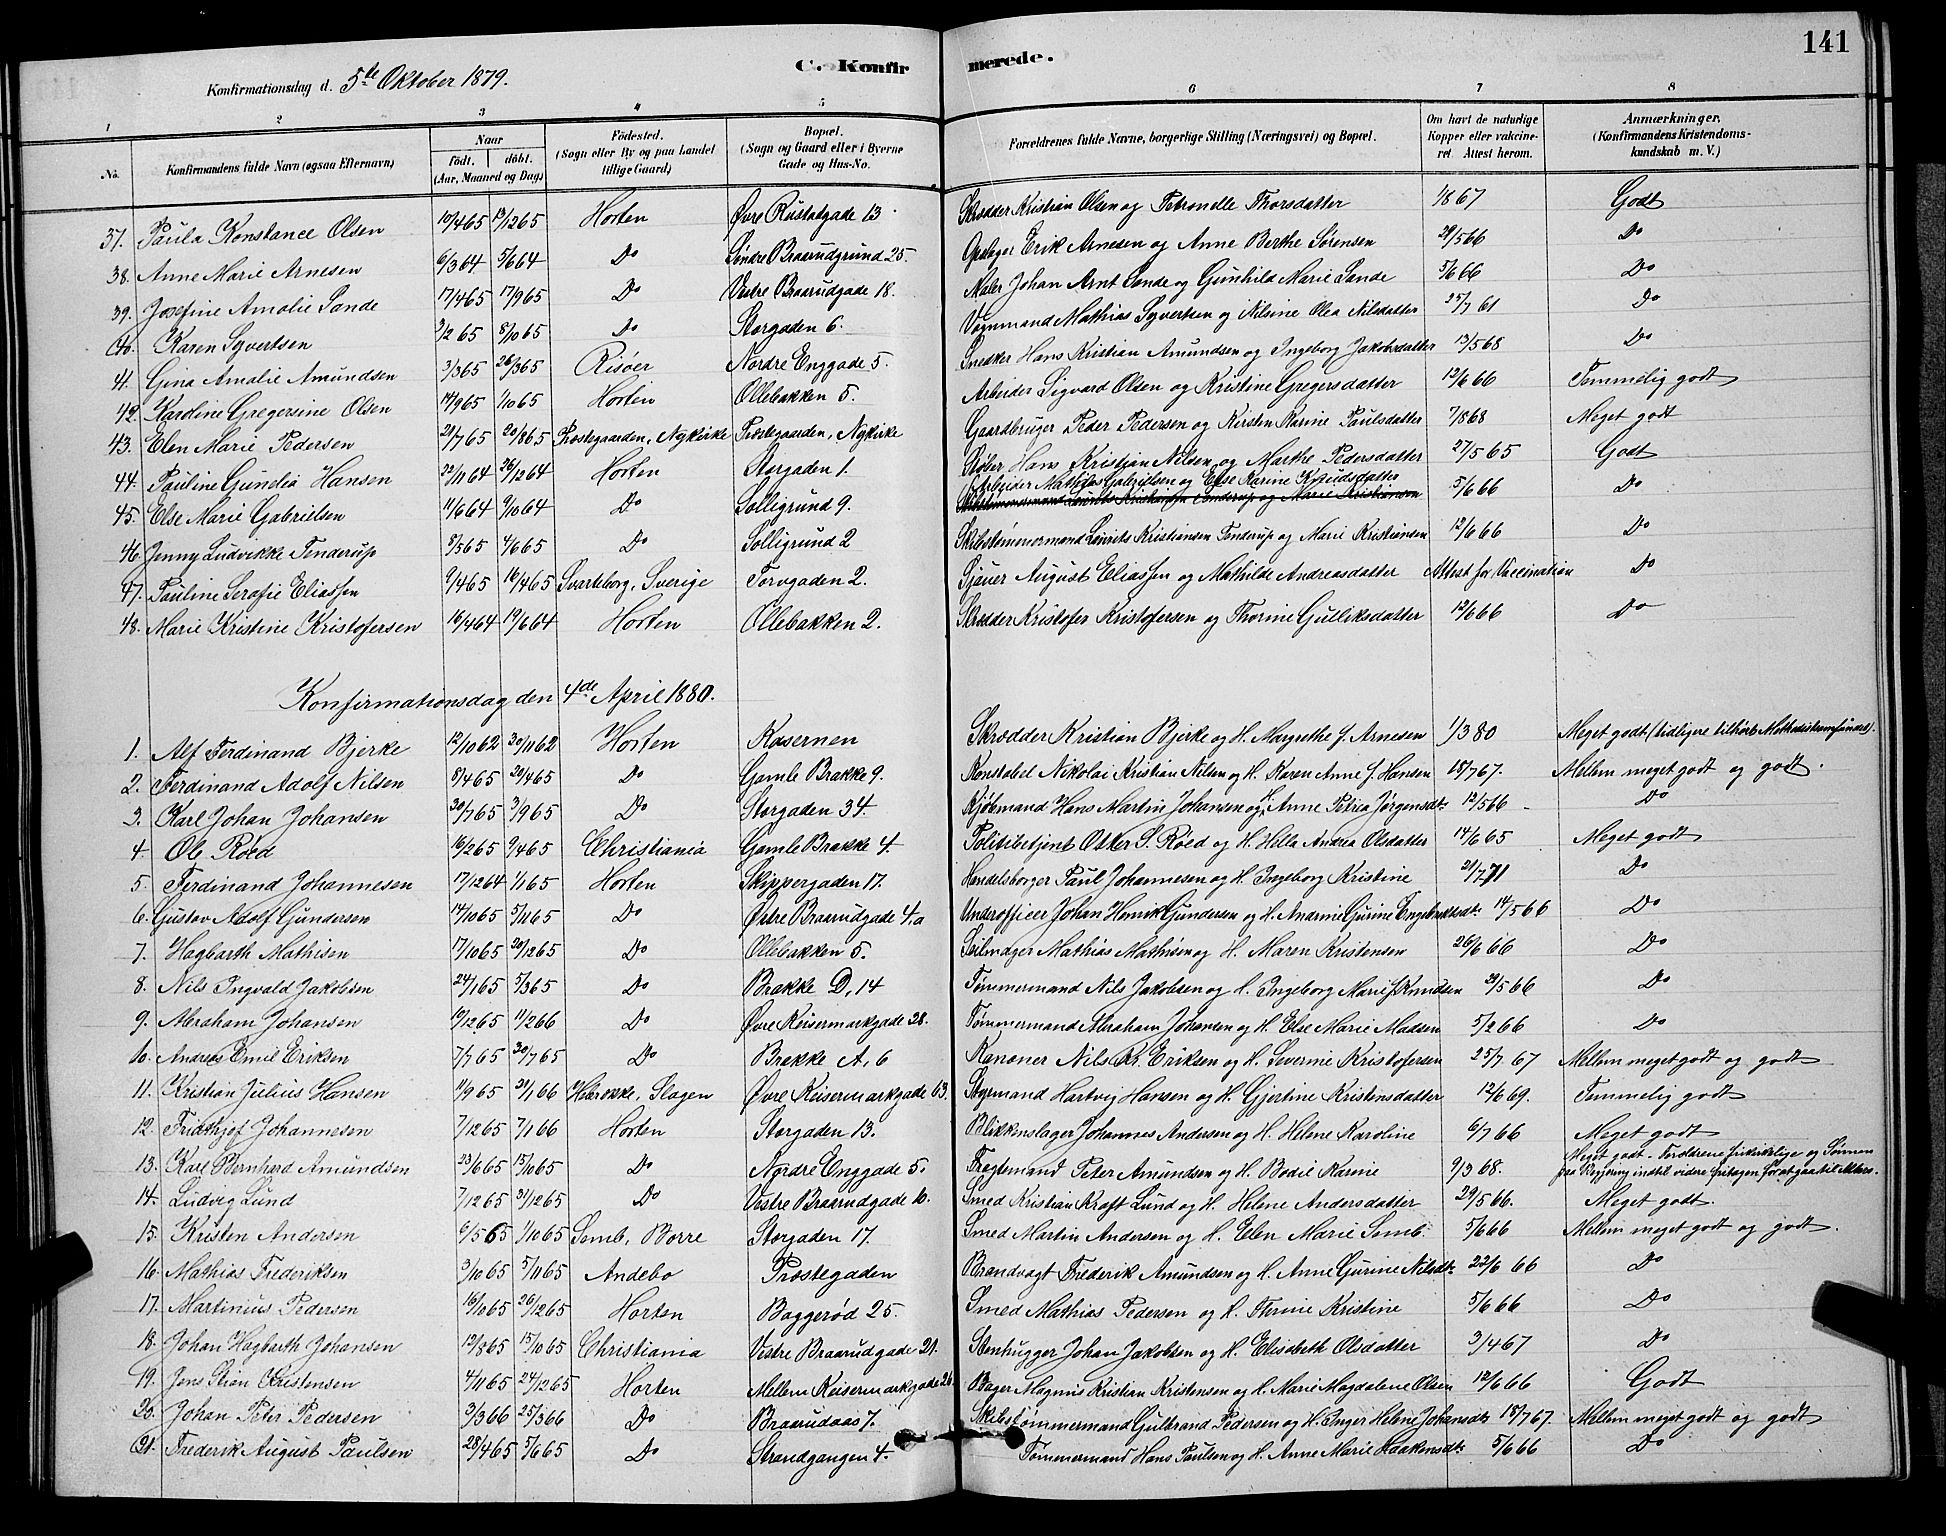 141
C. Konfir merede.
Konfirmationsdag d. 5te Oktober 1879.
1 2 3 4 5 6 7 8
No. Konfirmandens fulde Navn (ogsaa Efternavn) Naar født. døbt. (Aar, Maaned og Dag) Fødested. (Sogn eller By og paa Landet tillige Gaard) Bopæl. (Sogn og Gaard eller i Byerne Gade og Hus-No. Forældrenes fulde Navne, borgerlige Stilling (Næringsvei) og Bopæl. Om havt de naturlige Kopper eller vakcineret. Attest herom. Anmærkninger. (Konfirmandens Kristendomskundskab m. V.)
37. Paula Konstance Olsen 10/4 65 13/12 65 Horten Øvre Rustadgade 13. Skrædder Kristian Olsen og Petronelle Thorsdatter 1/8 67 Godt
38. Anne Marie Arnesen 6/3 64 5/6 64 Do Søndre Braarudgrund 25. Erik Arnesen og Anne Berthe Sørensen 29/5 66 Do
39. Josefine Amalie Sande 17/4 65 17/9 65 Do Vestre Braarudgade 18. Maler Johan Arnt Sande og Gunhild Marie Sande 5/6 66 Do
40. Karen Syvertsen 3/2 65 8/10 65 Do Storgaden 6. Vognmand Mathias Syvertsen og Nilsine Olea Nilsdatter 25/7 61 Do
41. Gina Amalie Amundsen 3/3 65 26/3 65 Risöer Nordre Enggade 5. Snedker Hans Kristian Amundsen og Ingeborg Jakobsdatter 13/5 68 Do
42. Karoline Gregersine Olsen 14/9 65 1/10 65 Horten Ollebakken 5. Arbeider Sigvard Olsen og Kristine Gregersdatter 12/6 66 Temmelig godt
43. Elen Marie Pedersen 21/7 65 20/8 65 Præstegaarden, Nykirke Præstegaarden, Nykirke Gaardbruger Peder Pedersen og Kirsten Karine Paulsdatter 7/8 68 Meget godt
44. Pauline Gundia Hansen 22/11 64 26/12 64 Horten Storgaden 1. Støber Hans Kristian Nilsen og Marthe Pedersdatter 27/5 65 Godt
45. Else Marie Gabrielsen 11/6 64 9/10 64 Do Solligrund 9. Arbeider Mathias Gabrielsen og Else Karine Knudsdatter 5/6 66 Do
46. Jenny Ludvikke Tenderup 8/5 65 4/6 65 Do Solligrund 2 Skibstømmermand Lauritz Kristiansen Tenderup og Marie Kristiansen 12/6 66 Do
47. Pauline Serafie Eliassen 9/4 65 16/4 65 Svarteborg, Sverige Torvgaden 2. Sjauer August Eliassen og Mathilde Andreasdatter Attest for Vaccination Do
48. Marie Kristine Kristofersen 16/4 64 19/6 64 Horten Ollebakken 2. Skrædder Kristofer Kristofersen og Thorine Gulliksdatter 12/6 66 Do
Konfirmationsdag den 4de April 1880.
1. Alf Ferdinand Bjerke 12/10 62 30/11 62 Horten Kasernen Skrædder Kristian Bjerke og H. Margrethe f. Arnesen 1/3 80 Meget godt (tidligere tilhørt Methodistsamfundet).
2. Ferdinand Adolf Nilsen 8/4 65 29/4 65 Do Gamle Brakke 9. Konstabel Nikolai Kristian Nilsen og H. Karen Anne f. Hansen 18/7 67. Mellem meget godt og godt.
3. Karl Johan Johansen 30/7 65 3/9 65 Do Storgaden 34. Kjøbmand Hans Martin Johansen og H. Anne Petria Jørgensdt. 12/5 66 Do
4. Ole Røed 16/2 65 9/4 65 Christiania Gamle Brakke 4. Politibetjent Otter S. Røed og H. Hella Andrea Olsdatter 14/6 65 Meget godt
5. Ferdinand Johannesen 17/12 64 1/1 65 Horten Skippergaden 17. Handelsborger Paul Johannesen og H. Ingeborg Kristine 21/7 71 Do
6. Gustav Adolf Gundersen 14/10 65 5/11 65 Do Østre Braarudgade 4.a Underofficer Johan Henrik Gundersen og H. Andrine Gurine Engebretsdt. 14/5 66 Do
7. Hagbarth Mathisen 17/10 65 30/12 65 Do Ollebakken 5. Seilmager Mathias Mathisen og H. Maren Kristensen 26/6 66 Do
8. Nils Ingvald Jakobsen 24/1 65 5/3 65 Do Brakke D, 14 Tømmermand Nils Jakobsen og H. Ingeborg Marie f. Knudsen 29/5 66 Do
9. Abraham Johansen 19/12 65 11/2 66 Do Øvre Keisermarkgade 28. Tømmermand Abraham Johansen og H. Else Marie Madsen 5/2 66 Do
10. Andreas Emil Eriksen 7/7 65 30/7 65 Do Brakke A, 6 Kanoner Nils Kr. Eriksen og H. Severine Kristofersen 25/7 67 Mellem meget godt og godt
11. Kristian Julius Hansen 11/9 65 21/1 66 Heierokke, Slagen Øvre Keisermarkgade 63. Styrmand Hartvig Hansen og H. Gjertine Kristensdatter 12/6 69. Temmelig godt
12. Fridthjof Johannesen 7/12 65 7/1 66 Horten Storgaden 13. Blikkenslager Johannes Andersen og H. Helene Karoline 6/7 66 Meget godt
13. Karl Bernhard Amundsen 23/6 65 15/10 65 Do Nordre Enggade 5. Fragtemand Peter Amundsen og H. Bodil Karine 9/3 68. Meget godt. Forældrene frikirkelige og Sønnen paa Begjæring indtil videre fritagen for at gaa til Alters.
14. Ludvig Lund 7/12 65 31/12 65 Do Vestre Braarudgade 10. Smed Kristian Kraft Lund og H. Helene Andersdatter 29/5 66. Meget godt.
15. Kristen Andersen 6/5 65 1/10 65 Semb, Borre Storgaden 17. Smed Martin Andersen og H. Elen Marie Semb. 5/6 66 Mellem meget godt og godt.
16. Mathias Frederiksen 3/10 65 5/11 65 Andebo Præstegaden Brandvagt Frederik Amundsen og H. Anne Gurine Nilsdt. 22/6 66 Do
17. Martinius Pedersen 16/10 65 26/12 65 Horten Baggerød 25. Smed Mathias Pedersen og H. Kristine 5/6 66 Do
18. Johan Hagbarth Johansen 12/8 65 15/10 65 Christiania Vestre Braarudgade 21. Stenhugger Johan Jakobsen og H. Elisabeth Olsdatter 3/4 67 Do
19. Jens Kristensen 4/11 65 24/12 65 Horten Mellem Keisermarkgade 26 Bager Magnus Kristian Kristensen og H. Marie Magdalene Olsen 12/6 66 Godt
20. Johan Peter Pedersen 3/3 66 25/3 66 Do Braarudaas 7. Skibstømmermand Gulbrand Pedersen og H. Inger Helene Johansdt. 18/7 67. Mellem meget godt og godt
21. Frederik August Paulsen 28/4 65 5/6 65 Do Strandgangen 4. Tømmermand Hans Paulsen og H. Anne Marie Haakensdt. 5/6 66 Do